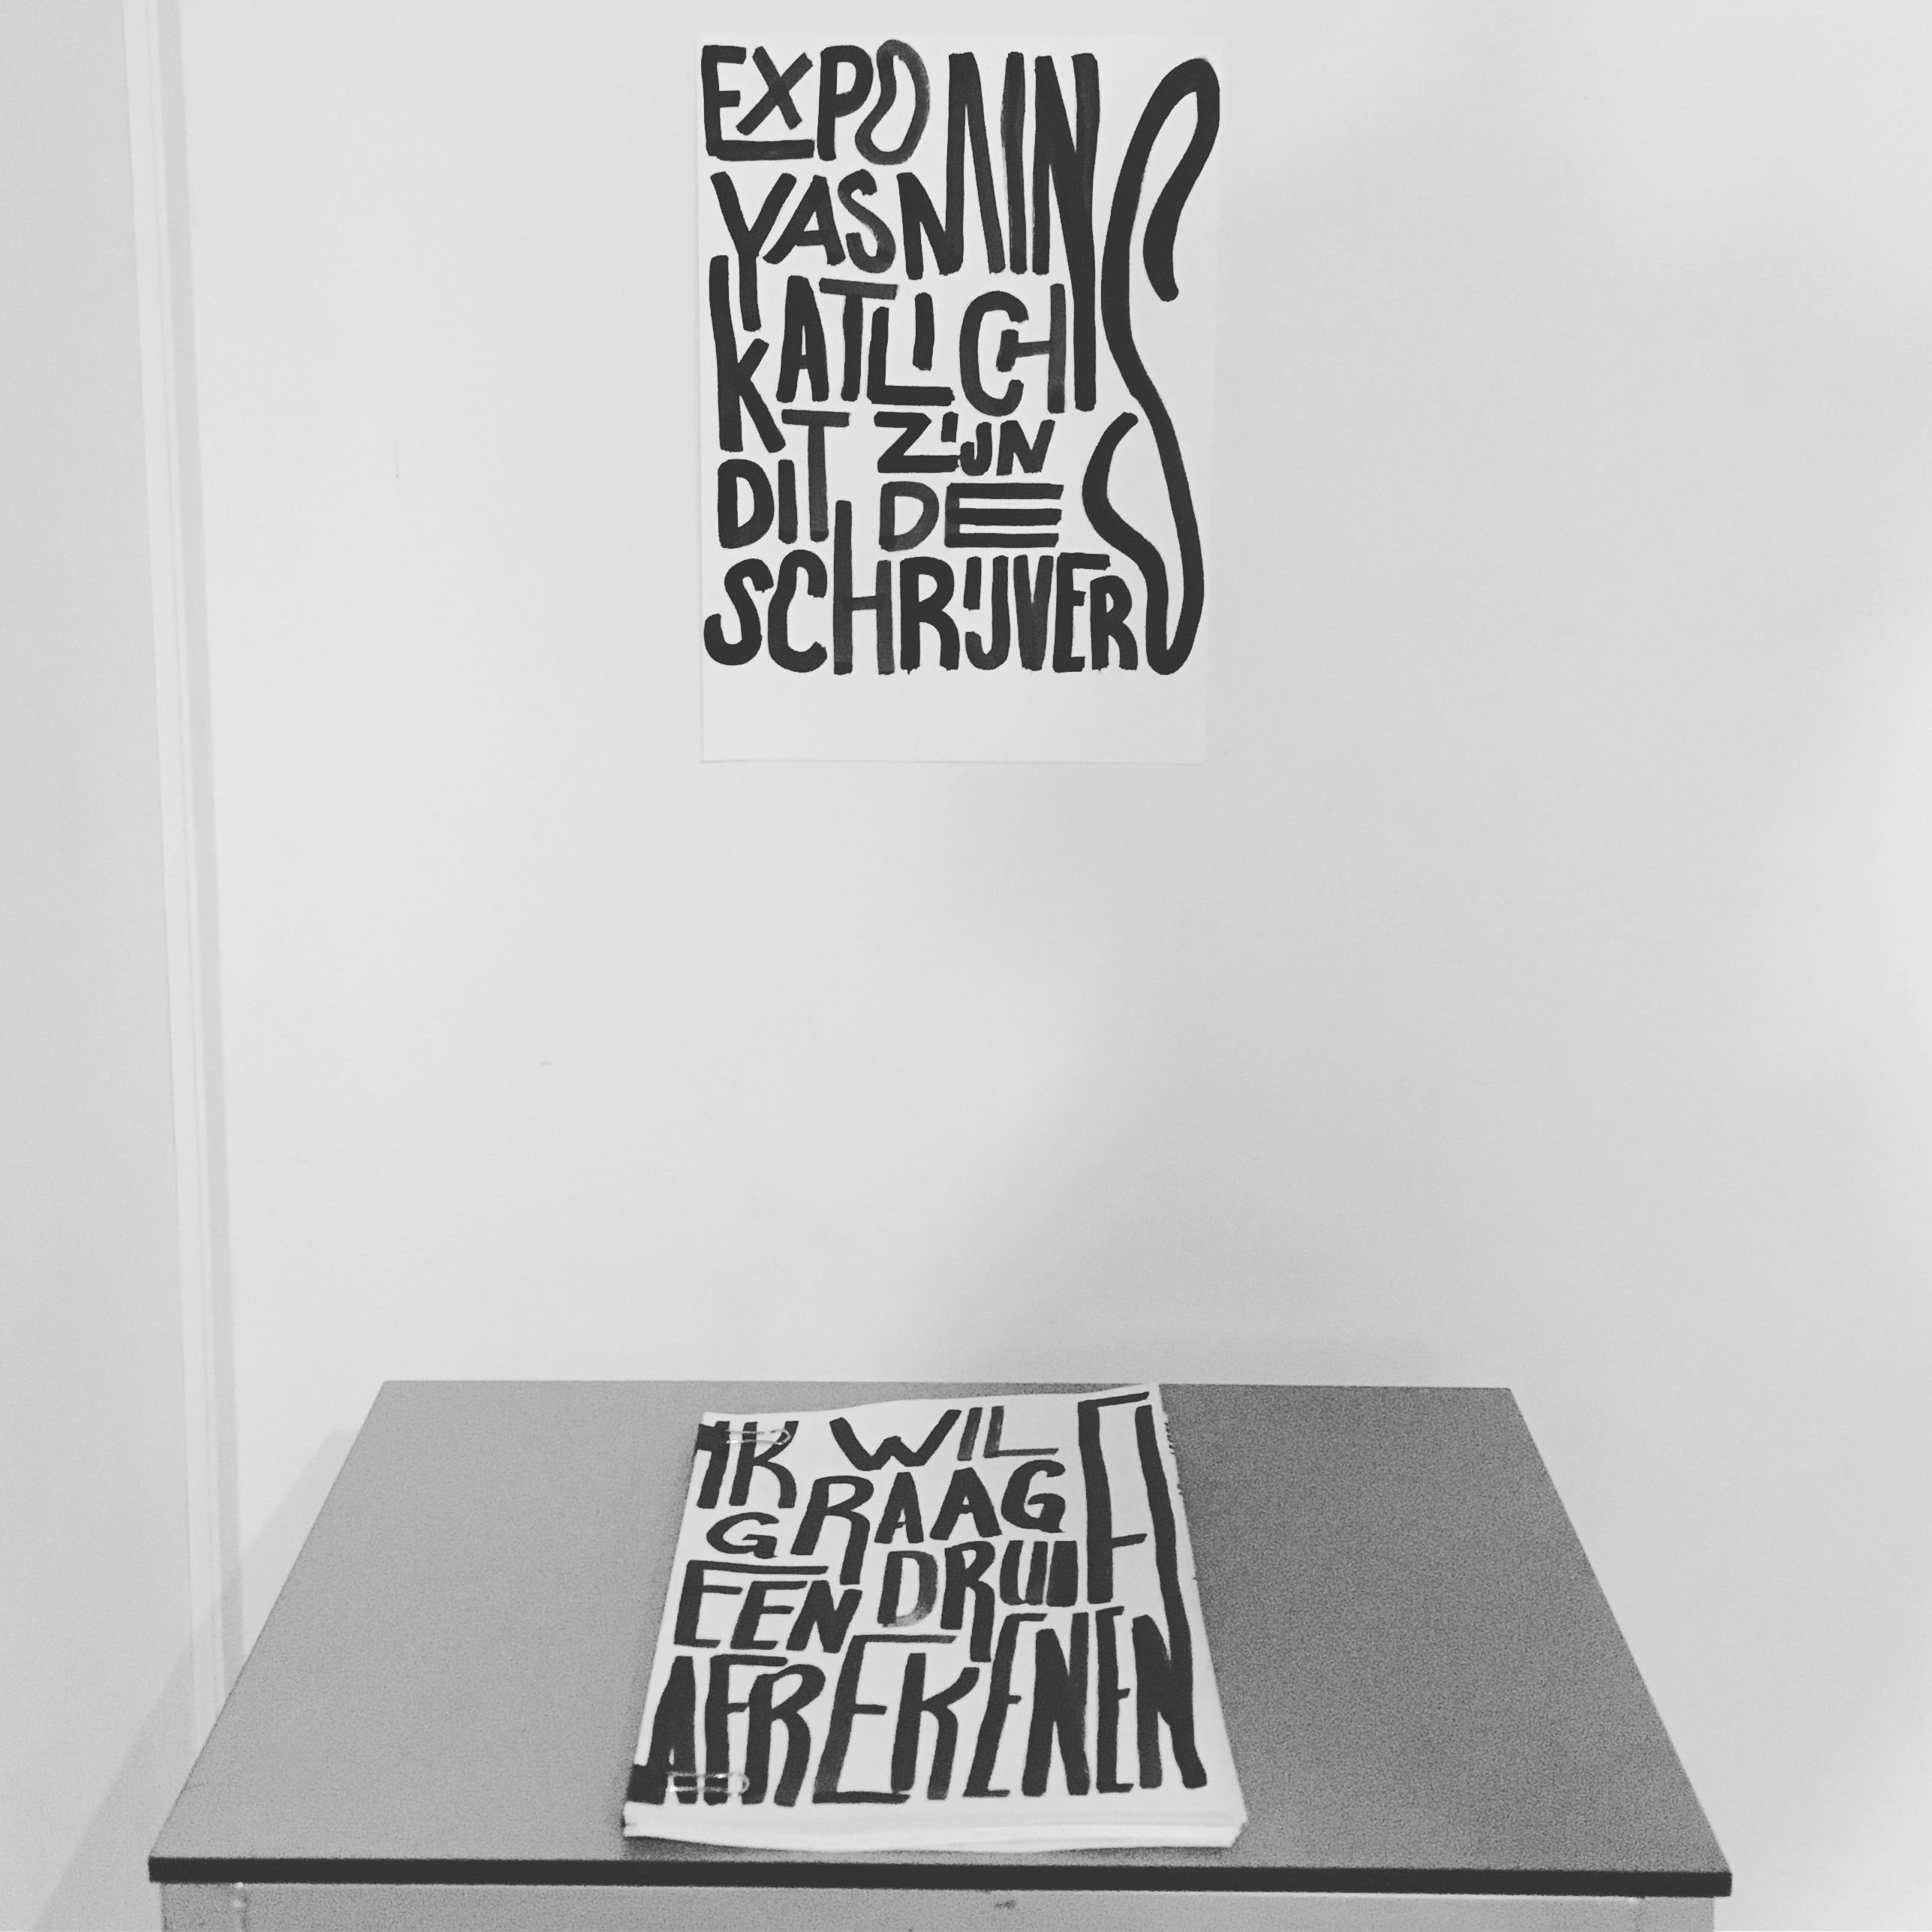 EXPO
YASMIN
KATLICH
DIT ZIJN
DE
SCHRIJVERS
IK WIL
GRAAG
EEN DRUIF
AFREKENEN